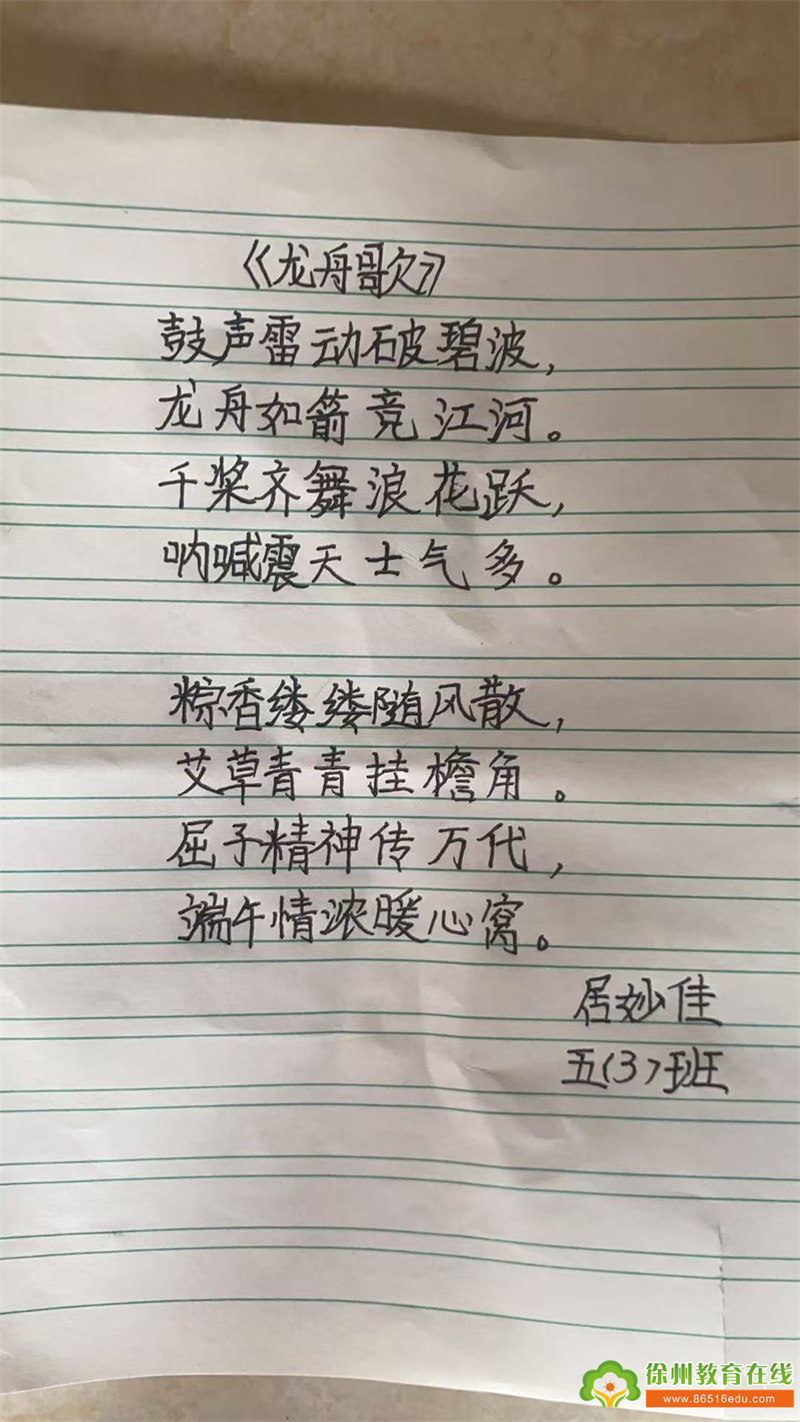 《龙舟歌》
鼓声雷动破碧波，
龙舟如箭竞江河。
千桨齐舞浪花跃，
呐喊震天士气多。
粽香缕缕随风散，
艾草青青挂檐角。
屈子精神传万代，
端午情浓暖心窝。
居妙佳
五(3)班
徐州教育在线
www.86516edu.com